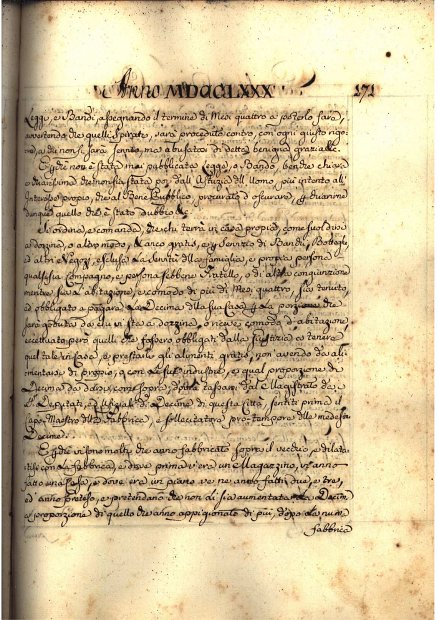 Anno MDCCLXXX 171
Leggi, e Bandi, assegnando il termine di Mesi quattro a poterlo fare,
avvertendo che quelli spirati, sarà proceduto contro, con ogni giusto rigo-
re, a chi non si sarà servito, ma abusatosi di detta benigna grazia &c.
E perchè non è stata mai pubblicata Legge, o Bando, benchè chiara
e chiarissima, che non sia stata poi dall'Astuzia dell'Uomo, più intento all'
Interesse proprio, che al Bene Pubblico, procurata d'oscurare, per chiarirne
dunque quello che è stato dubbio &c.
Se ordina, e comanda, che chi terrà in casa propria, come suol dirsi
a dozzina, o altro modo, & anco gratis, per servizio di Bandi, Botteghe
ed altri Negozj, esclusa la servitù della famiglia, e propria persona
qualsisia Compagno, e persona sebbene Fratello, o di altra congiunzione
mentre sua abitazione, e comodo di più di Mesi quattro, sia tenuto,
ed obbligato a pagare la Decima della sua Casa per la porzione che
sarà goduta da chi vi stesse a dozzina, o riceve comodo d'abitazione,
eccettuato però quelli che fossero obbligati dalla Giustizia a tenere
quel tale in Casa, e prestarli gli alimenti gratis, non avendo da ali-
mentarsi di proprio, o con le sue industrie, e qual proporzione di
Decima da darsi, come sopra, dovrà tassarsi dal Magistrato de'
SS. Deputati, ed Uffiziali di Decime di questa Città, sentito prima il
Capo Maestro della Fabbrica, e sollecitatore pro tempore delle medesime
Decime.
E perchè vi sono molti che anno fabbricato sopra il vecchio, e dilata-
tisi con la fabbrica, e dove prima v'era un Magazzino, vi anno
fatto una Casa, e dove era un piano ve ne anno fatti due, e tre,
ed anno preteso, e pretendano che non li sia aumentata la Decima
a proporzione di quello che anno appigionato di più, dopo la nuova
fabbrica